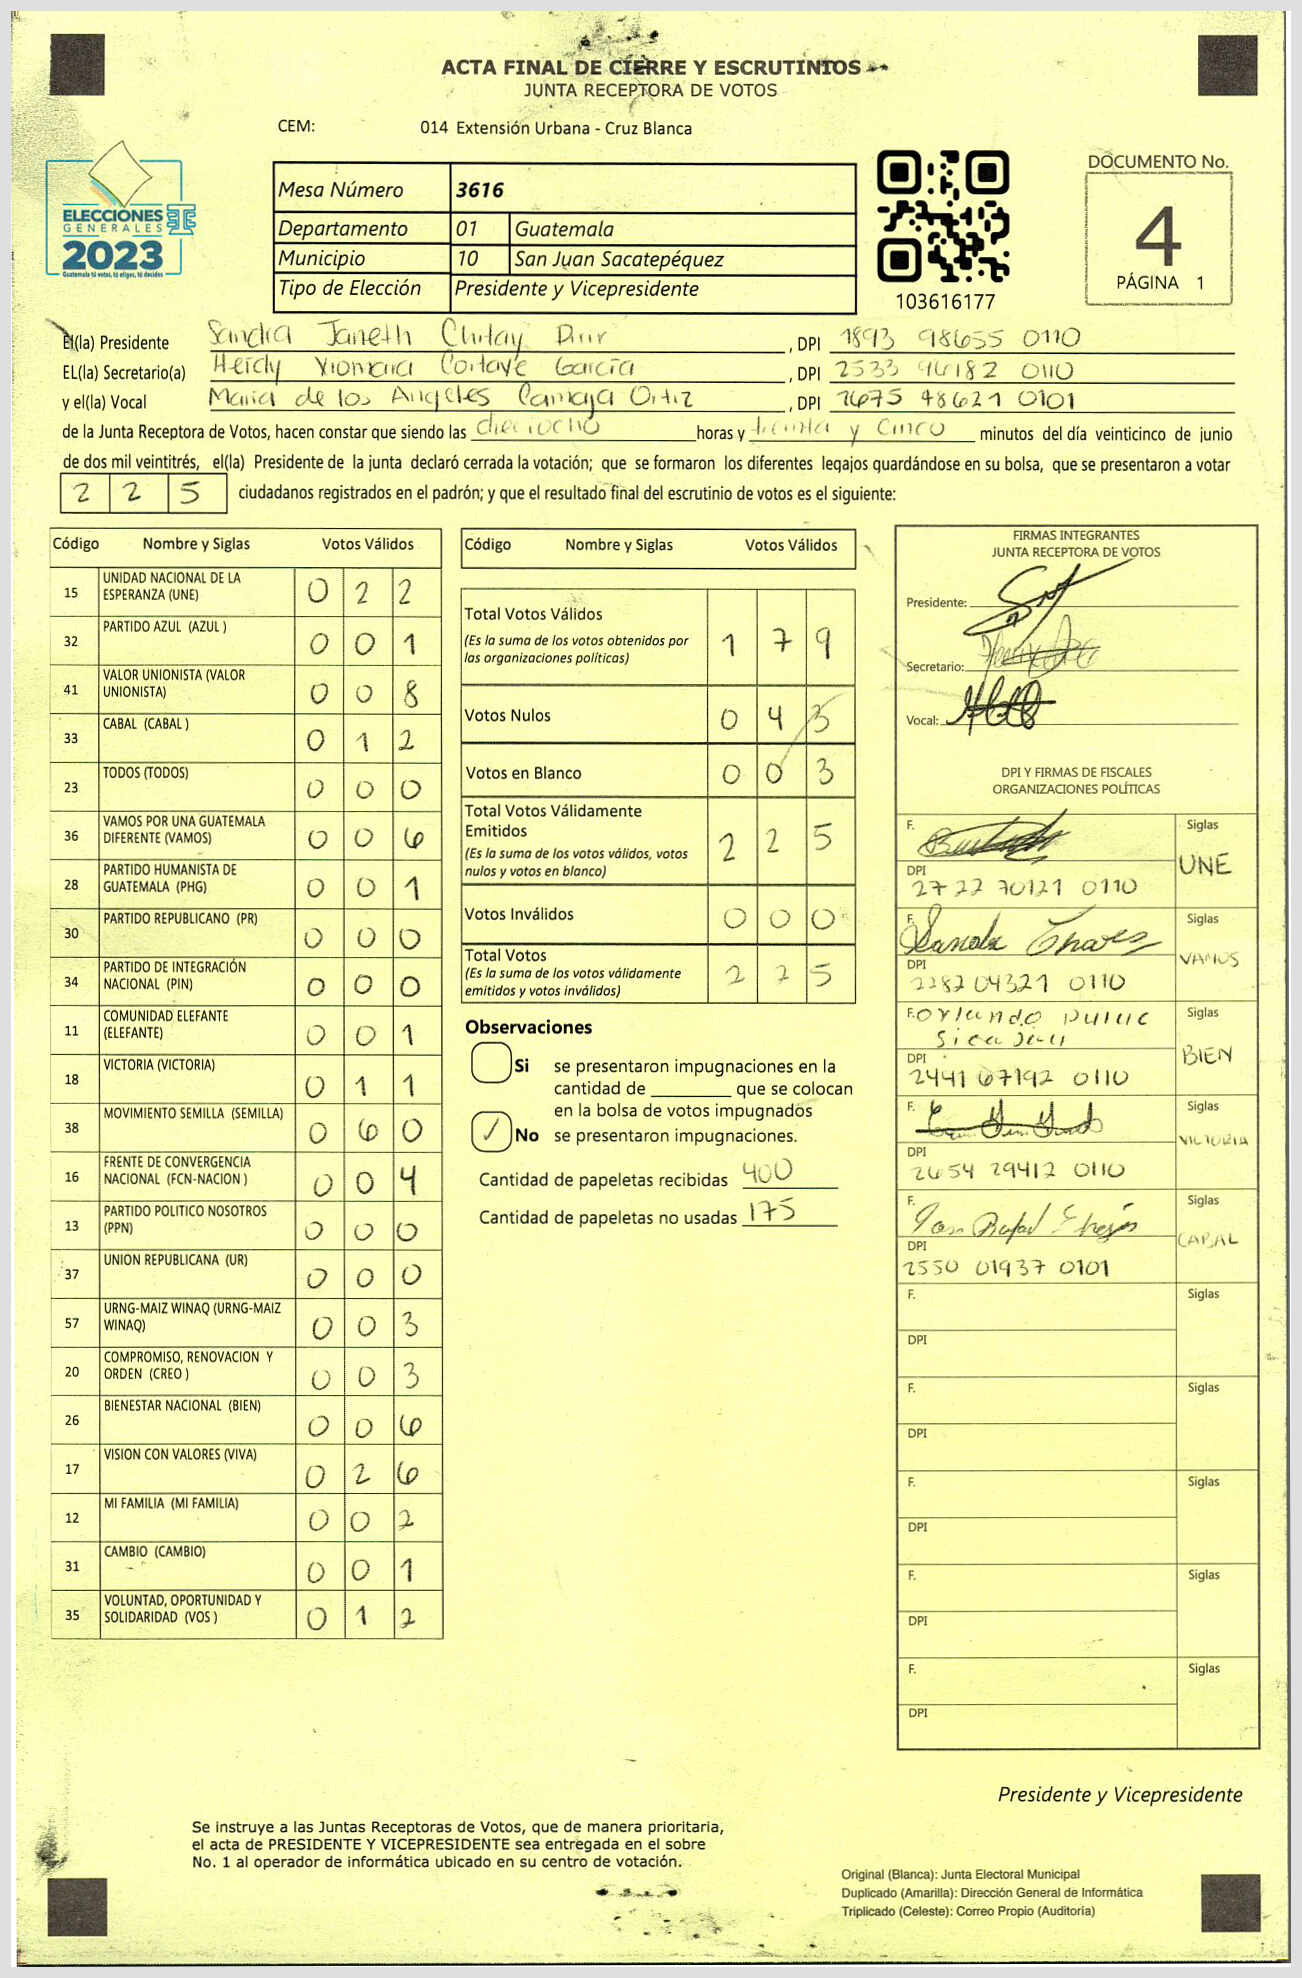 ACTA FINAL DE CIERRE Y ESCRUTINIOS
JUNTA RECEPTORA DE VOTOS
CEM: 014 Extensión Urbana - Cruz Blanca
ELECCIONES
GENERALES
2023
Guatemala tú votas, tú eliges, tú decides
Mesa Número 3616
Departamento 01 Guatemala
Municipio 10 San Juan Sacatepéquez
Tipo de Elección Presidente y Vicepresidente
103616177
DOCUMENTO No.
4
PÁGINA 1
El(la) Presidente Sandra Janeth Chitay , DPI 1893 98655 0110
EL(la) Secretario(a) Heidy Xiomara Cotave García , DPI 2533 94182 0110
y el(la) Vocal Maria de los Angeles Camaja Ortiz , DPI 2675 48621 0101
de la Junta Receptora de Votos, hacen constar que siendo las dieciocho horas y treinta y cinco minutos del día veinticinco de junio
de dos mil veintitrés, el(la) Presidente de la junta declaró cerrada la votación; que se formaron los diferentes legajos guardándose en su bolsa, que se presentaron a votar
2 2 5 ciudadanos registrados en el padrón; y que el resultado final del escrutinio de votos es el siguiente:
Código Nombre y Siglas Votos Válidos
15 UNIDAD NACIONAL DE LA ESPERANZA (UNE) 0 2 2
32 PARTIDO AZUL (AZUL ) 0 0 1
41 VALOR UNIONISTA (VALOR UNIONISTA) 0 0 8
33 CABAL (CABAL ) 0 1 2
23 TODOS (TODOS) 0 0 0
36 VAMOS POR UNA GUATEMALA DIFERENTE (VAMOS) 0 0 6
28 PARTIDO HUMANISTA DE GUATEMALA (PHG) 0 0 1
30 PARTIDO REPUBLICANO (PR) 0 0 0
34 PARTIDO DE INTEGRACIÓN NACIONAL (PIN) 0 0 0
11 COMUNIDAD ELEFANTE (ELEFANTE) 0 0 1
18 VICTORIA (VICTORIA) 0 1 1
38 MOVIMIENTO SEMILLA (SEMILLA) 0 6 0
16 FRENTE DE CONVERGENCIA NACIONAL (FCN-NACION ) 0 0 4
13 PARTIDO POLITICO NOSOTROS (PPN) 0 0 0
37 UNION REPUBLICANA (UR) 0 0 0
57 URNG-MAIZ WINAQ (URNG-MAIZ WINAQ) 0 0 3
20 COMPROMISO, RENOVACION Y ORDEN (CREO ) 0 0 3
26 BIENESTAR NACIONAL (BIEN) 0 0 6
17 VISION CON VALORES (VIVA) 0 2 6
12 MI FAMILIA (MI FAMILIA) 0 0 2
31 CAMBIO (CAMBIO) 0 0 1
35 VOLUNTAD, OPORTUNIDAD Y SOLIDARIDAD (VOS ) 0 1 2
Código Nombre y Siglas Votos Válidos
Total Votos Válidos 1 7 9
(Es la suma de los votos obtenidos por
las organizaciones políticas)
Votos Nulos 0 4 3
Votos en Blanco 0 0 3
Total Votos Válidamente
Emitidos 2 2 5
(Es la suma de los votos válidos, votos
nulos y votos en blanco)
Votos Inválidos 0 0 0
Total Votos 2 2 5
(Es la suma de los votos válidamente
emitidos y votos inválidos)
Observaciones
Si se presentaron impugnaciones en la
cantidad de ________ que se colocan
en la bolsa de votos impugnados
✓ No se presentaron impugnaciones.
Cantidad de papeletas recibidas 400
Cantidad de papeletas no usadas 175
FIRMAS INTEGRANTES
JUNTA RECEPTORA DE VOTOS
Presidente:
Secretario:
Vocal:
DPI Y FIRMAS DE FISCALES
ORGANIZACIONES POLÍTICAS
F. Siglas
UNE
DPI
2722 70121 0110
F. Sanda Chavez Siglas
VAMOS
DPI
2282 04321 0110
F. Orlando Siglas
BIEN
DPI
2441 67192 0110
F. Siglas
VICTORIA
DPI
2654 29412 0110
F. Siglas
CABAL
DPI
2550 01937 0101
F. Siglas
DPI
F. Siglas
DPI
F. Siglas
DPI
F. Siglas
DPI
F. Siglas
DPI
Presidente y Vicepresidente
Se instruye a las Juntas Receptoras de Votos, que de manera prioritaria,
el acta de PRESIDENTE Y VICEPRESIDENTE sea entregada en el sobre
No. 1 al operador de informática ubicado en su centro de votación.
Original (Blanca): Junta Electoral Municipal
Duplicado (Amarilla): Dirección General de Informática
Triplicado (Celeste): Correo Propio (Auditoria)